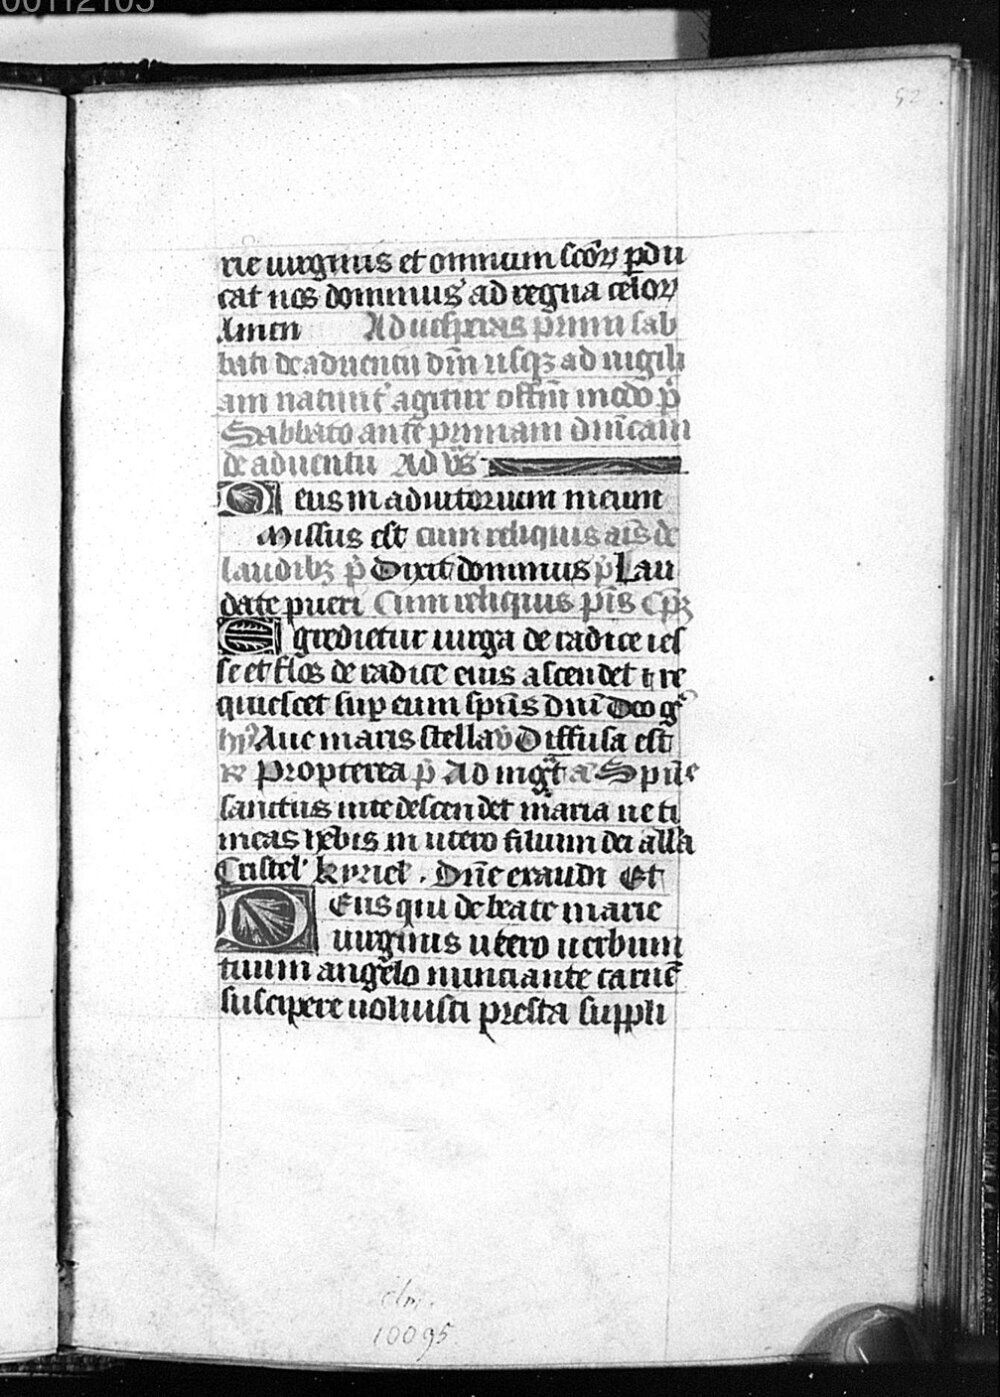 00112105
52
rie uirginis et omnium scõꝝ ꝑdu
cat nos dominus ad regna celoꝝ
Amen Ad uesperas primi sab
bati de aduentu dñi usqꝫ ad uigili
am natiuit' agitur offm̄ modo
Sabbato ante primam dñicam
de aduentu Ad vs̄
Deus in adiutorium meum
Missus est cum reliquis ais de
laudibꝫ p̄ Dixit dominus p̄ Lau
date pueri Cum reliquis p̄is Cpꝫ
Egredietur uirga de radice ies
se et flos de radice eius ascendet ⁊ re
quiescet suꝑ eum spūs dñi Deo gͣ
hỹ Aue maris stella v̄ Diffusa est
℟ Propterea p̄ Ad mgͣt a Spūs
sanctus in te descendet maria ne ti
meas hēbis in utero filium dei alla
Cristel' kyriel'. Dñe exaudi Et
Deus qui de beate marie
uirginis utero uerbum
tuum angelo nunciante carnē
suscipere uoluisti presta suppli
clm.
10095